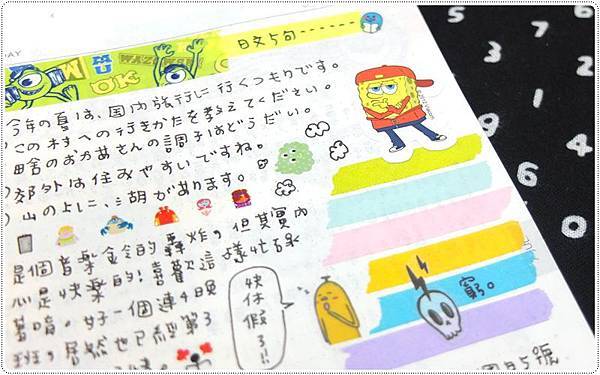 DAY
MU
OK
WAZOWSKI
日文5句------
今年の夏は、国内旅行に行くつもりです。
この村への行きかたを教えてください。
田舎のおかあさんの調子はどうだい。
郊外は住みやすいですね。
山のよこに、湖があります。
是個音樂金的轟炸,但其實內
心是快樂的!喜歡這樣忙碌
著唷。好一個連4晚
班,居然也已經第3
快休假了!!
寶弓。
5號
5
9
1
0
4
2
6